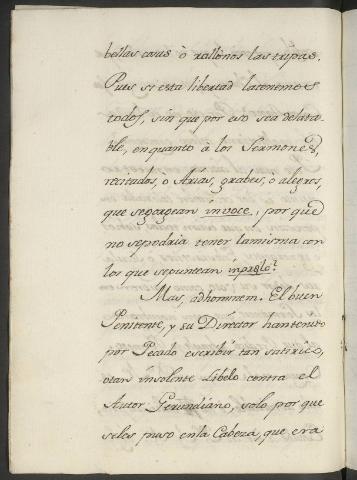 bellas cosas ò rallónos las tripas.
Pues si esta libertad la tenemos
todos, sin que por eso sea delata-
ble, en quanto à los Sermones,
recitados, ò Arias, grabes, ò alegres,
que segorgean in voce, por què
no sepodria tener la misma con
los que sepuntean in prælo?
Mas, ad hominem. El buen
Penitente, y su Director han tenido
por Pecado escribir tan satirico,
y tan insolente Libelo contra el
Autor Gerundiano, solo por que
seles puso en la Cabeza, que era